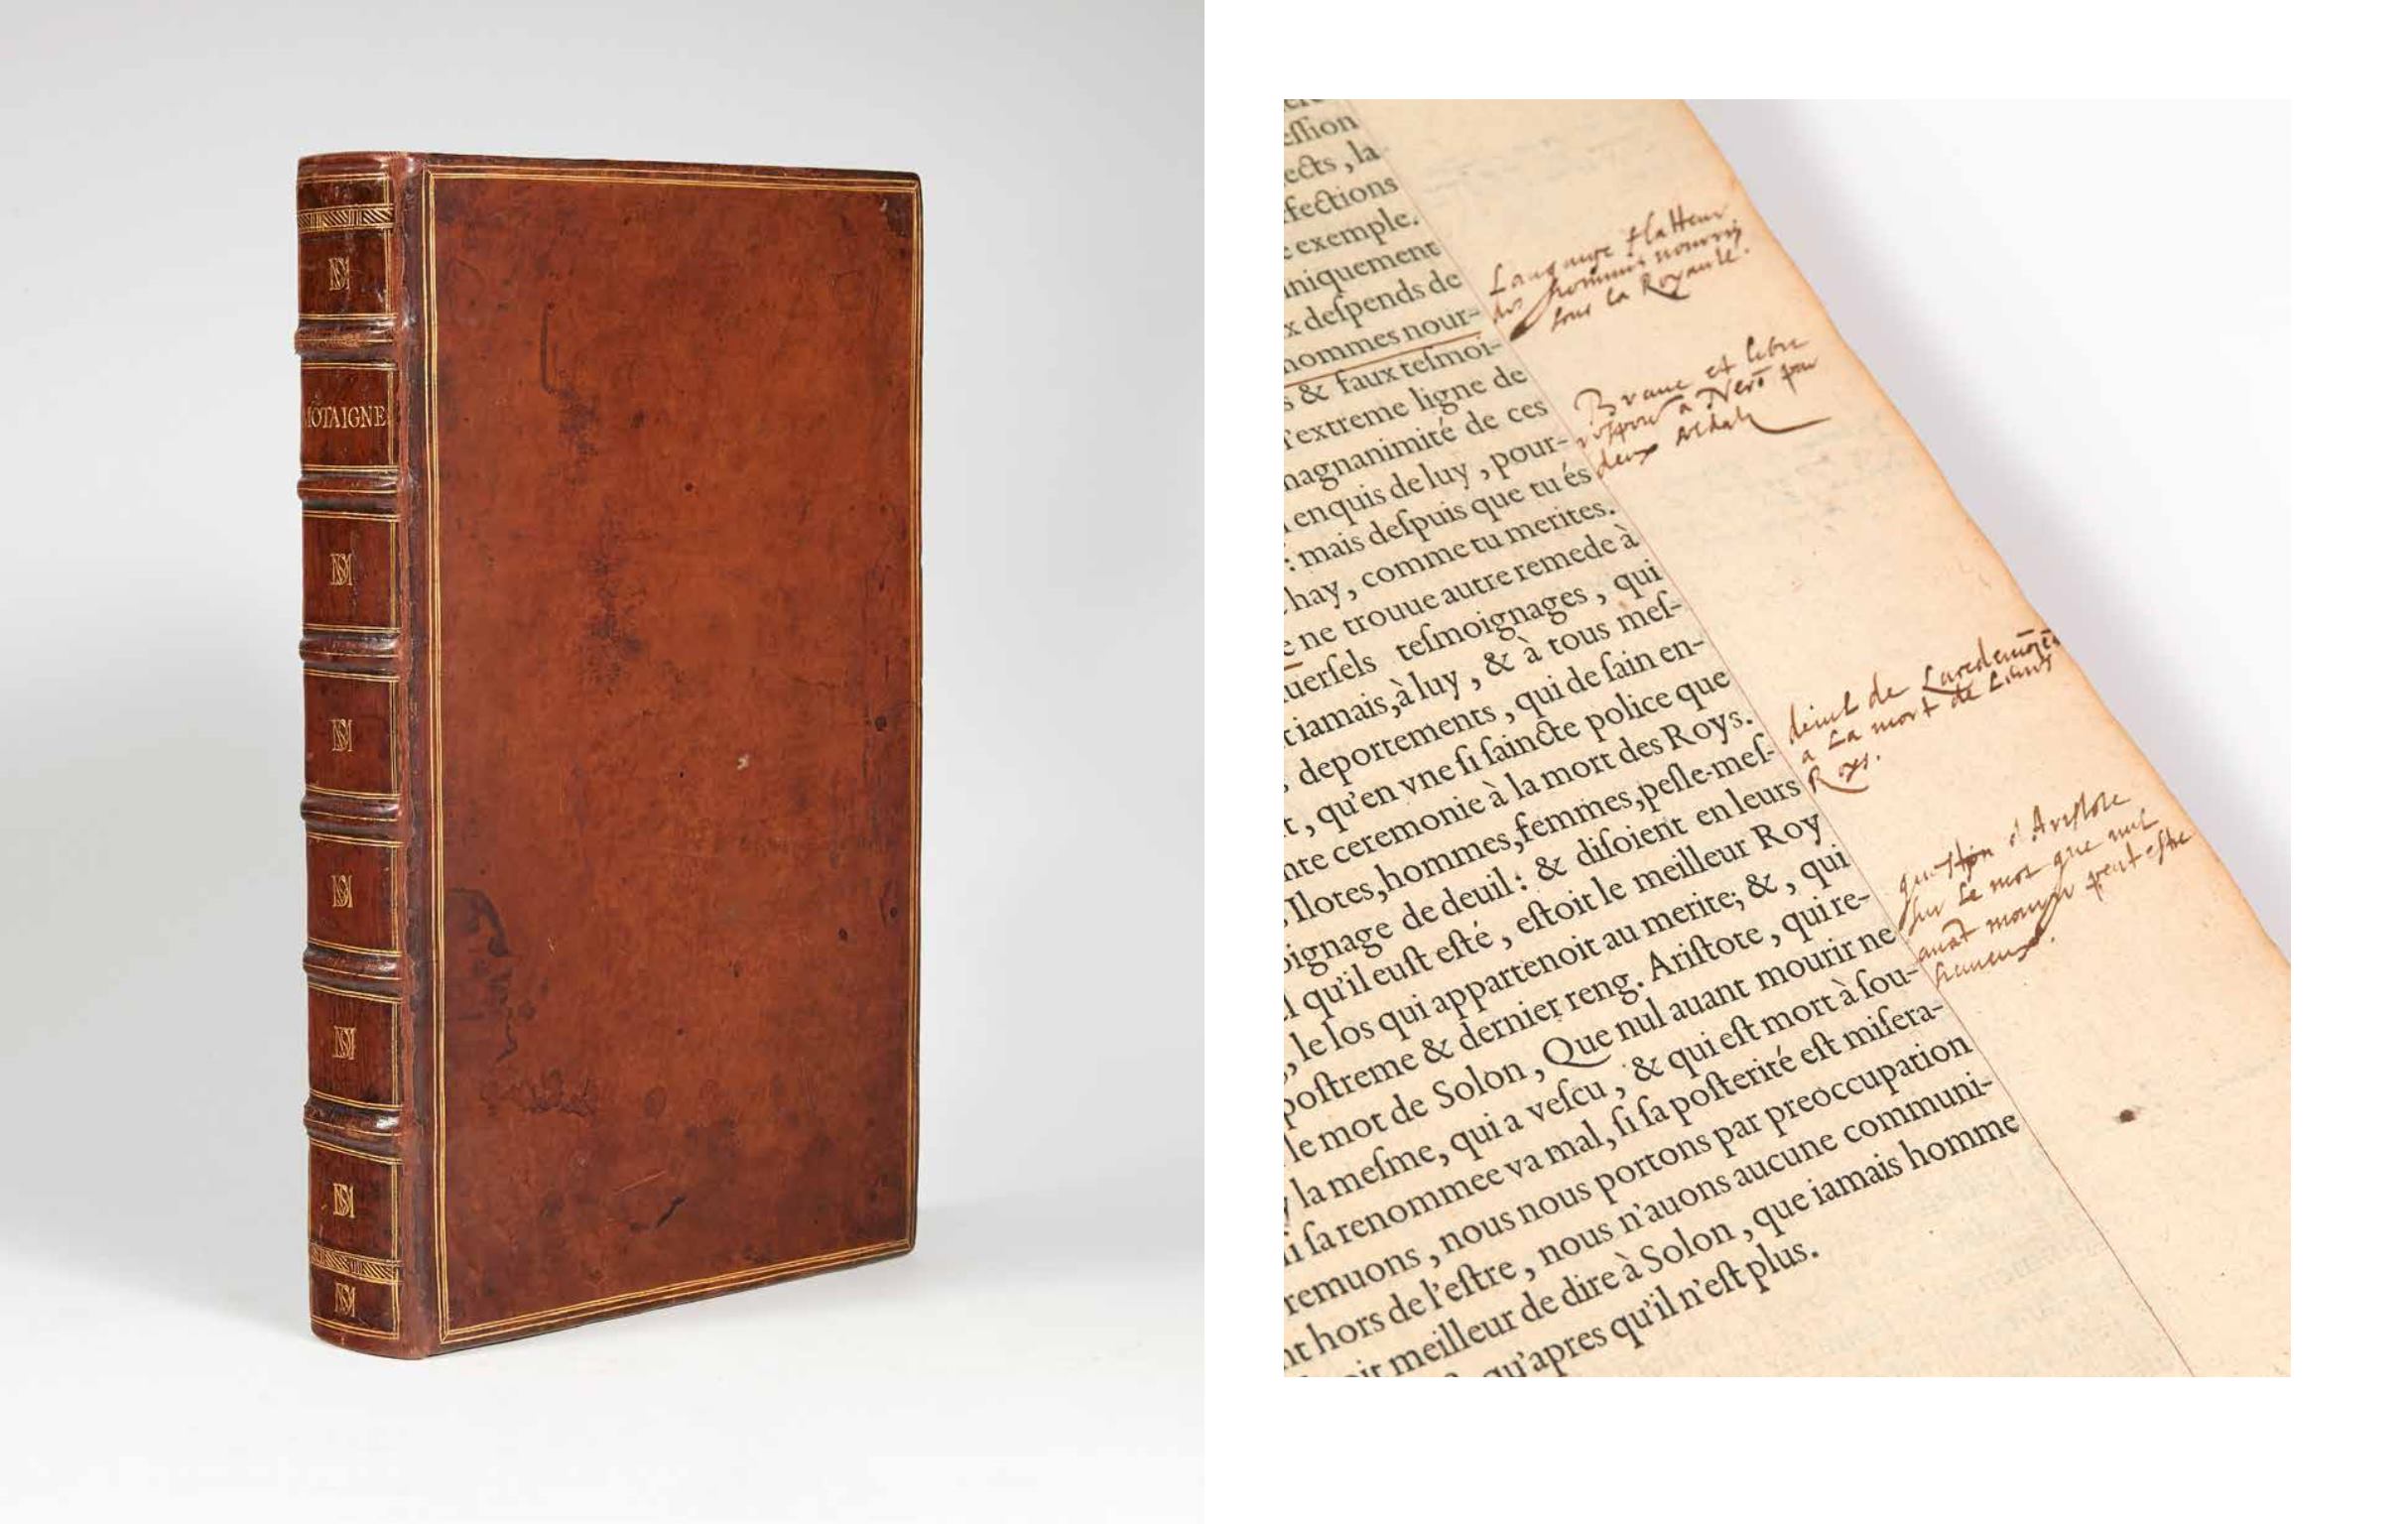 MOTAIGNE
ession
ects, la
fections
exemple.
niquement
x despends de
hommes nour-
s & faux tesmoi-
l'extreme ligne de
magnanimité de ces
enquis de luy, pour-
: mais despuis que tu és
hay, comme tu merites.
e ne trouue autre remede à
uersels tesmoignages, qui
t iamais, à luy, & à tous mes-
deportements, qui de sain en-
t, qu'en vne si saincte police que
nte ceremonie à la mort des Roys.
Ilotes, hommes, femmes, pesle-mes-
oignage de deuil: & disoient en leurs
l qu'il eust esté, estoit le meilleur Roy
, le los qui appartenoit au merite; &, qui
postreme & dernier reng. Aristote, qui re-
le mot de Solon, Que nul auant mourir ne
y la mesme, qui a vescu, & qui est mort à sou-
si sa renommee va mal, si sa posterité est misera-
remuons, nous nous portons par preoccupation
nt hors de l'estre, nous n'auons aucune communi-
oit meilleur de dire à Solon, que iamais homme
qu'apres qu'il n'est plus.
Langange flatteur
des hommes nourris
sous la Royauté.
Braue et libre
a Nerō par
deux soldats
deiul de Lacedemoniēs
a La mort de Leurs
Roys.
question d'Aristote
sur Le mot que nul
auāt mourir peut estre
heureux.